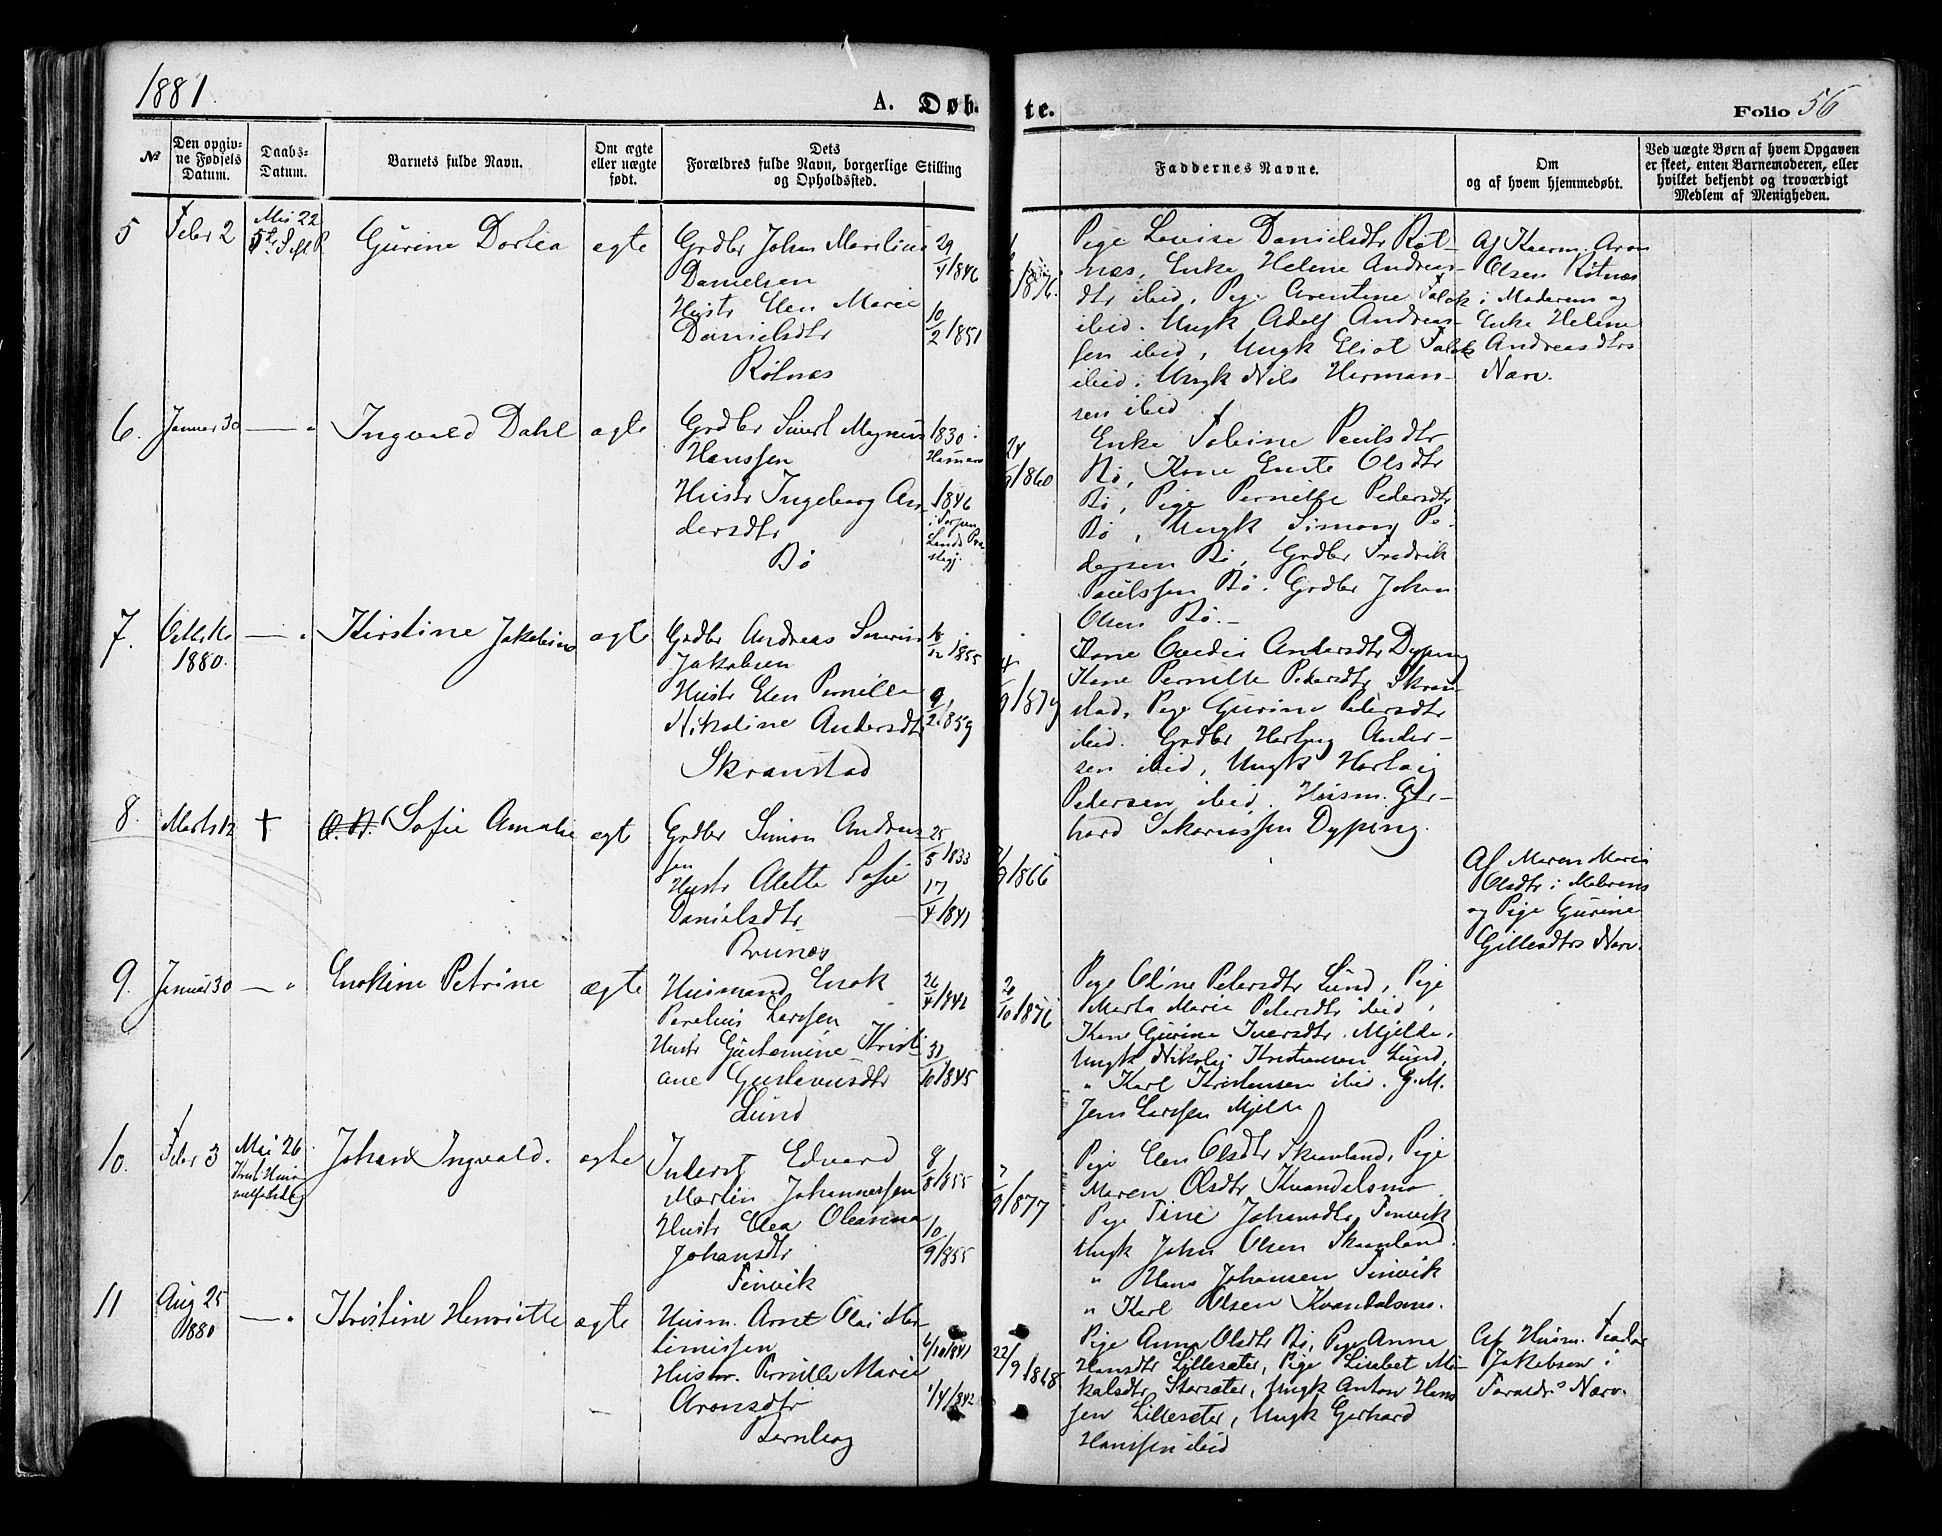 1881.
A. Døb-
te.
Folio 56
№
Den opgiv-
ne Fødsels
Datum.
Daabs-
Datum.
Barnets fulde Navn.
Om ægte
eller uægte
født.
Dets
Forældres fulde Navn, borgerlige Stilling
og Opholdssted.
Faddernes Navne.
Om
og af hvem hjemmedøbt.
Ved uægte Børn af hvem Opgaven
er skeet, enten Barnemoderen, eller
hvilket bekjendt og troværdigt
Medlem af Menigheden.
5
Febr 2
Mai 22
Gurine Dortea
ægte
Grdbr Johan Marelius
Danielsen
Hustr Elen Marie
Danielsdtr
Røtnes
29/4 1846
10/2 1851
1876.
Pige Lovise Danielsdtr Røt-
nes, Enke Helene Andreas-
dtr ibid, Pige Arentine Falck
ibid. Ungk Adolf Andreas-
sen ibid, Ungk Eliot Falck
ibid. Ungk Nils Herman-
sen ibid.
Af Kaarm. Aron
Olsen Røtnes
i Moderens og
Enke Helene
Andreasdtrs
Nærv.
6.
Januar 30
— "
Ingvald Dahl
ægte
Grdbr Sivert Magnus
Hanssen
Hustr Ingeborg An-
dersdtr
Bø
1830 i
1846
24/ 1860
Enke Fobine Paulsdtr
Bø, Kone Ente Olsdtr
Bø, Pige Pernille Pedersdtr
Bø, Ungk Simon Pe-
dersen Bø, Grdbr Fredrik
Paulssen Bø. Grdbr Johan
Olsen Bø.—
7.
1880.
— "
Kirstine Jakobine
ægte
Grdbr Andreas Severin
Jakobsen
Hustr Elen Pernille
Nikoline Andersdtr
Skranstad
/12 1855
9/2 1859
1879
Kone Andersdtr Dyping
Kone Pernille Pedersdtr Skran-
stad, Pige Gurine Pedersdtr
ibid. Grdbr Hartvig Ander-
sen ibid, Ungk Hartvig
Pedersen ibid. Husm. Ger-
hard Sakariassen Dyping.
8.
Marts 12
†
Sofie Amalie
ægt
Grdbr Simon Andreas-
sen
Hustr Alette Sofie
Danielsdtr
Brunæs
25/5 1833
17/4 1841
1866
Af Maren Marie
Olsdtr i Moderens
og Pige Gurine
Nærv.
9.
Januar 30
— "
Enokine Petrine
ægte
Husmand Enok
Perelius Larssen
Hustr Gustamine Kristi-
ane Gustavusdtr
Lund
26/4 1842
31/10 1845
2/10 1876
Pige Oline Petersdtr Lund, Pige
Marta Marie Petersdtr ibid,
Kone Gurine Iversdtr Mjelde,
Ungk Nikolai Kristiansen Lund,
" Karl Kristensen ibid. G.M.
Jens Larssen Mjelde
10.
Febr 3
Mai 26
Johan Ingvald.
ægte
Inderst Edvard
Martin Johannessen
Hustr Elea Oleanna
Johansdtr
Finvik
8/8 1855
10/9 1855
1877
Pige Elen Olsdtr Skaanland, Pige
Maren Olsdtr Kvandalsmo
Pige Tine Johansdtr Finvik
Ungk John Olsen Skaanland.
" Hans Johansen Finvik
" Karl Olsen Kvandalsmo.
11
Aug 25
1880
— "
Kristine Henriette
ægte
Husm. Arnt Olai Mor-
timissen
Hustr. Pernille Marie
Aronsdtr
Lernberg
6/10 1841
1/4 1842
22/9 1868
Pige Anna Olsdtr Bø, Pige Anna
Hansdtr Lillesæter, Pige Lisabet Mi-
kalsdtr Storsæter, Ungk Anton Hans-
sen Lillesæter, Ungk Gerhard
Hanssen ibid
Af Husm. Teodor
Jakobsen i
Foraldr.s Nærv.